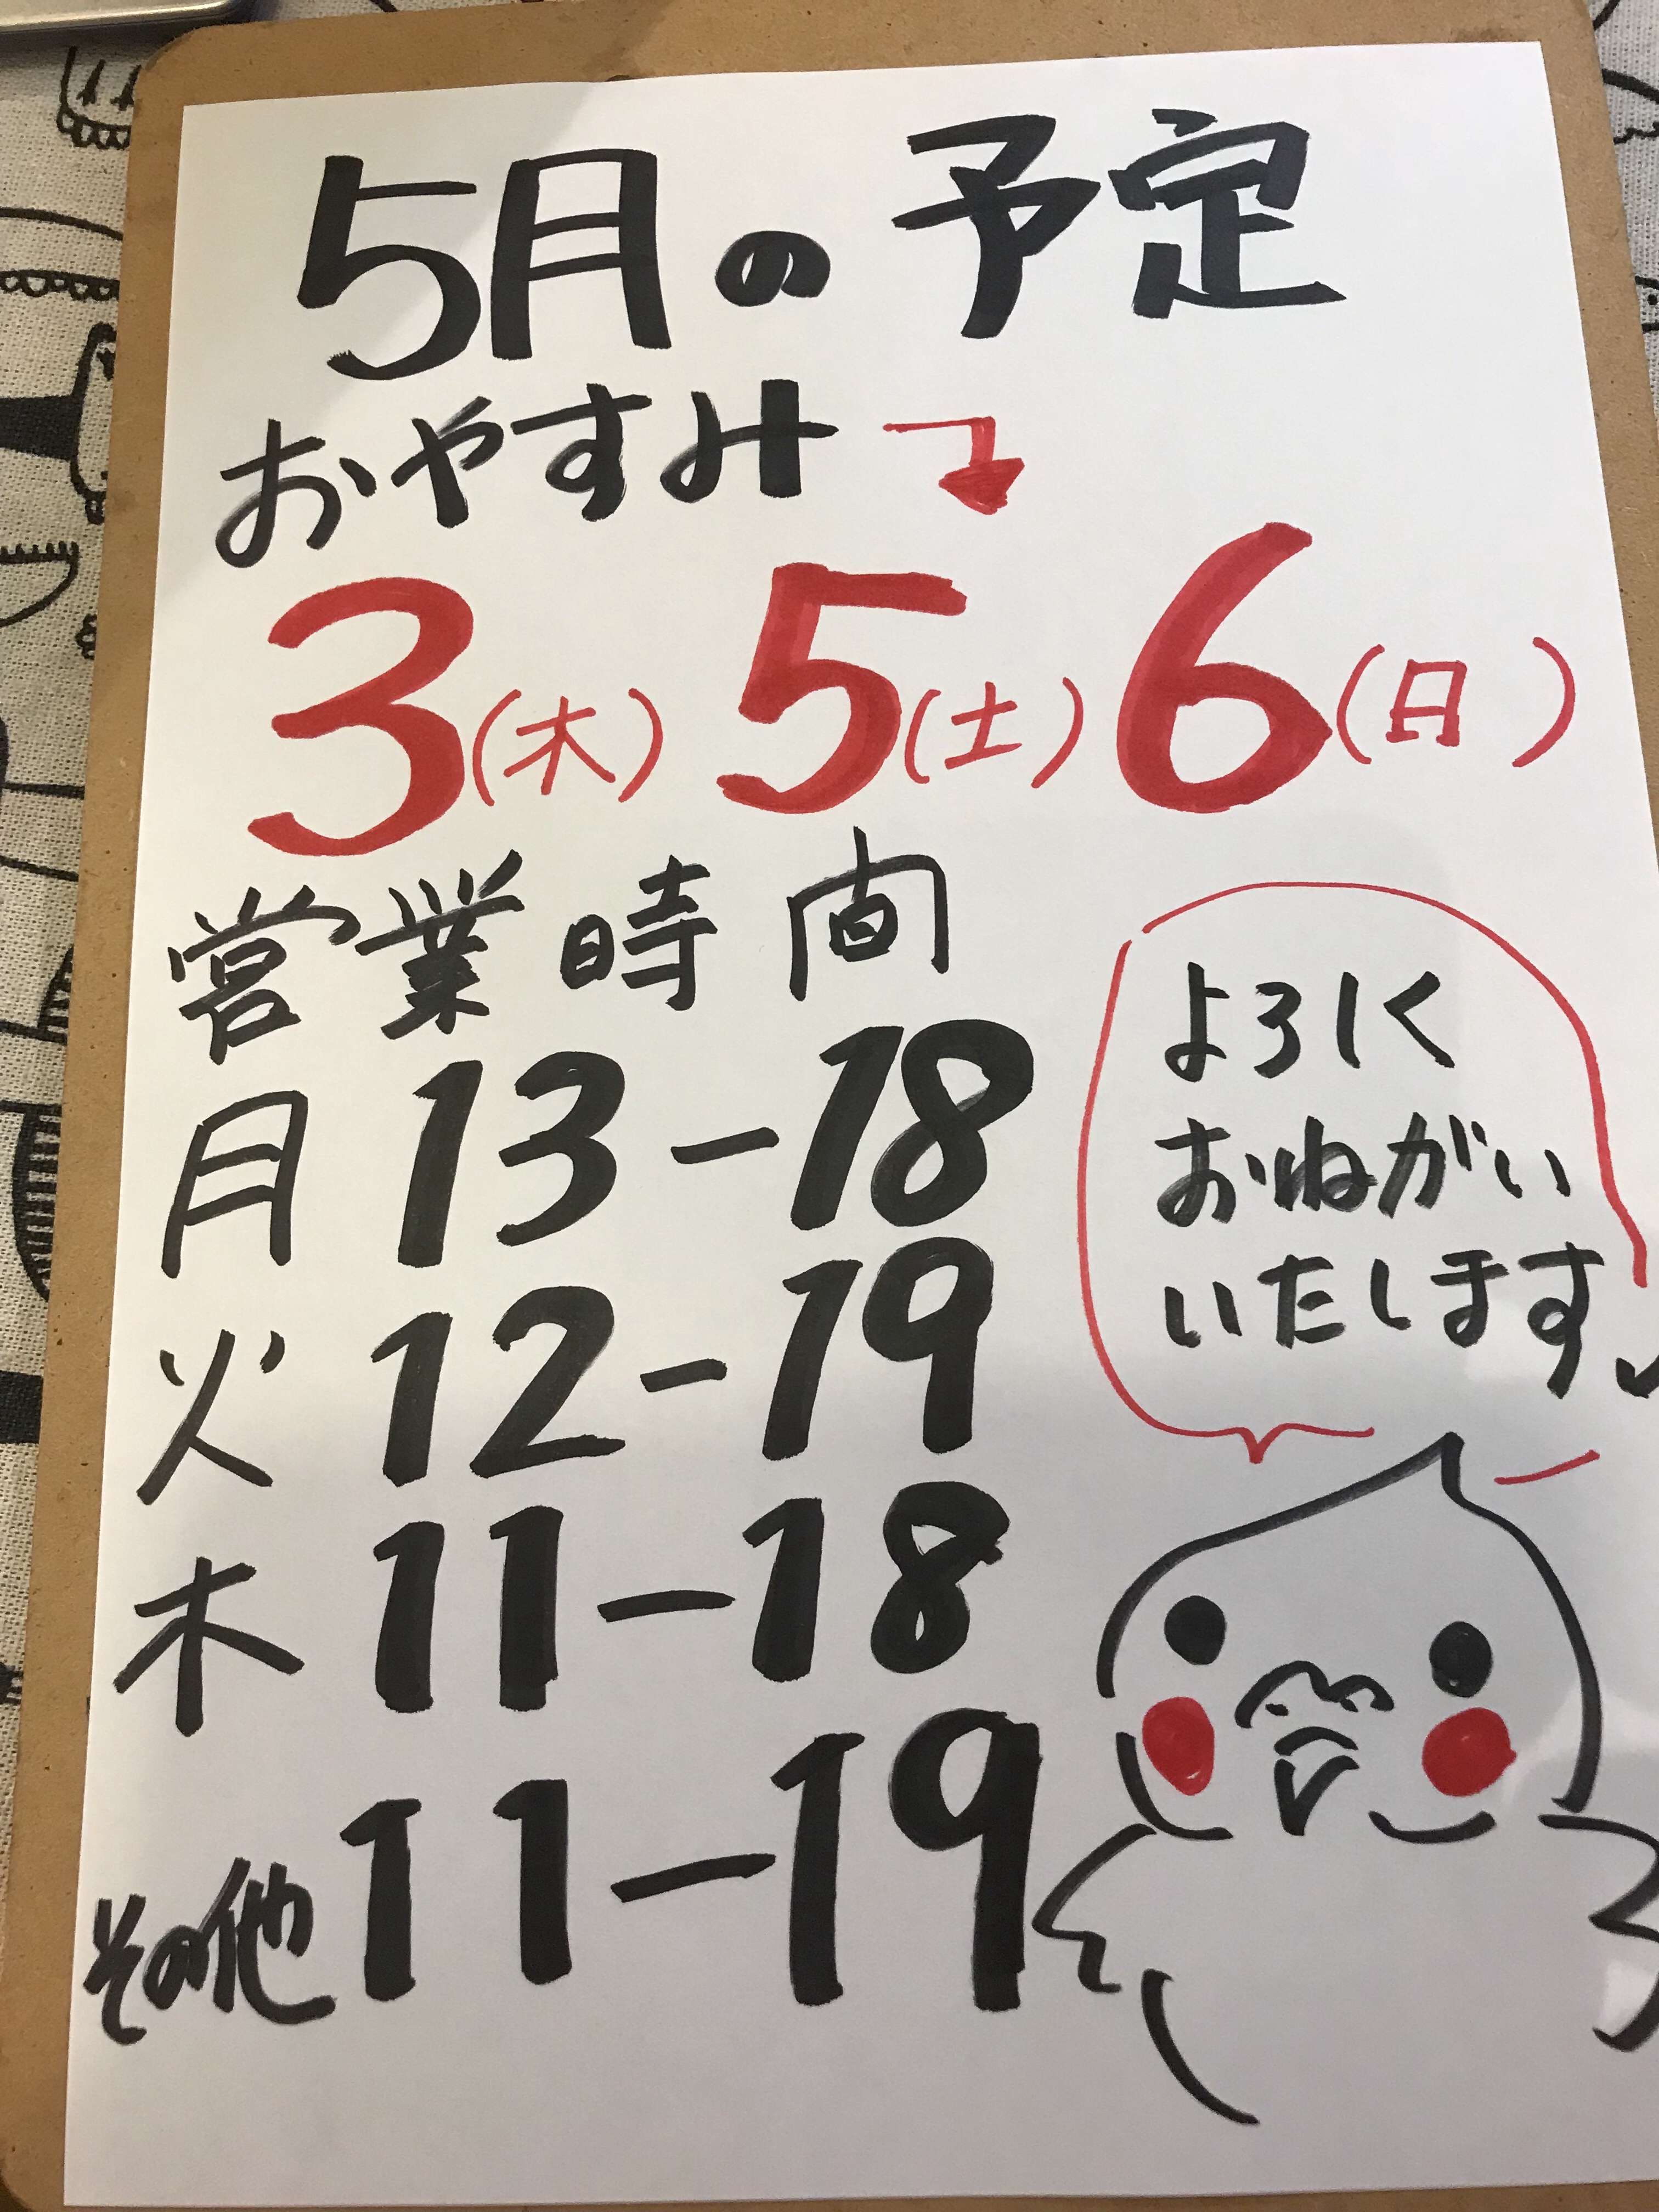 5月の予定
おやすみ
3(木) 5(土) 6(日)
営業時間
月 13-18
火 12-19
木 11-18
その他 11-19
よろしく
おねがい
いたします